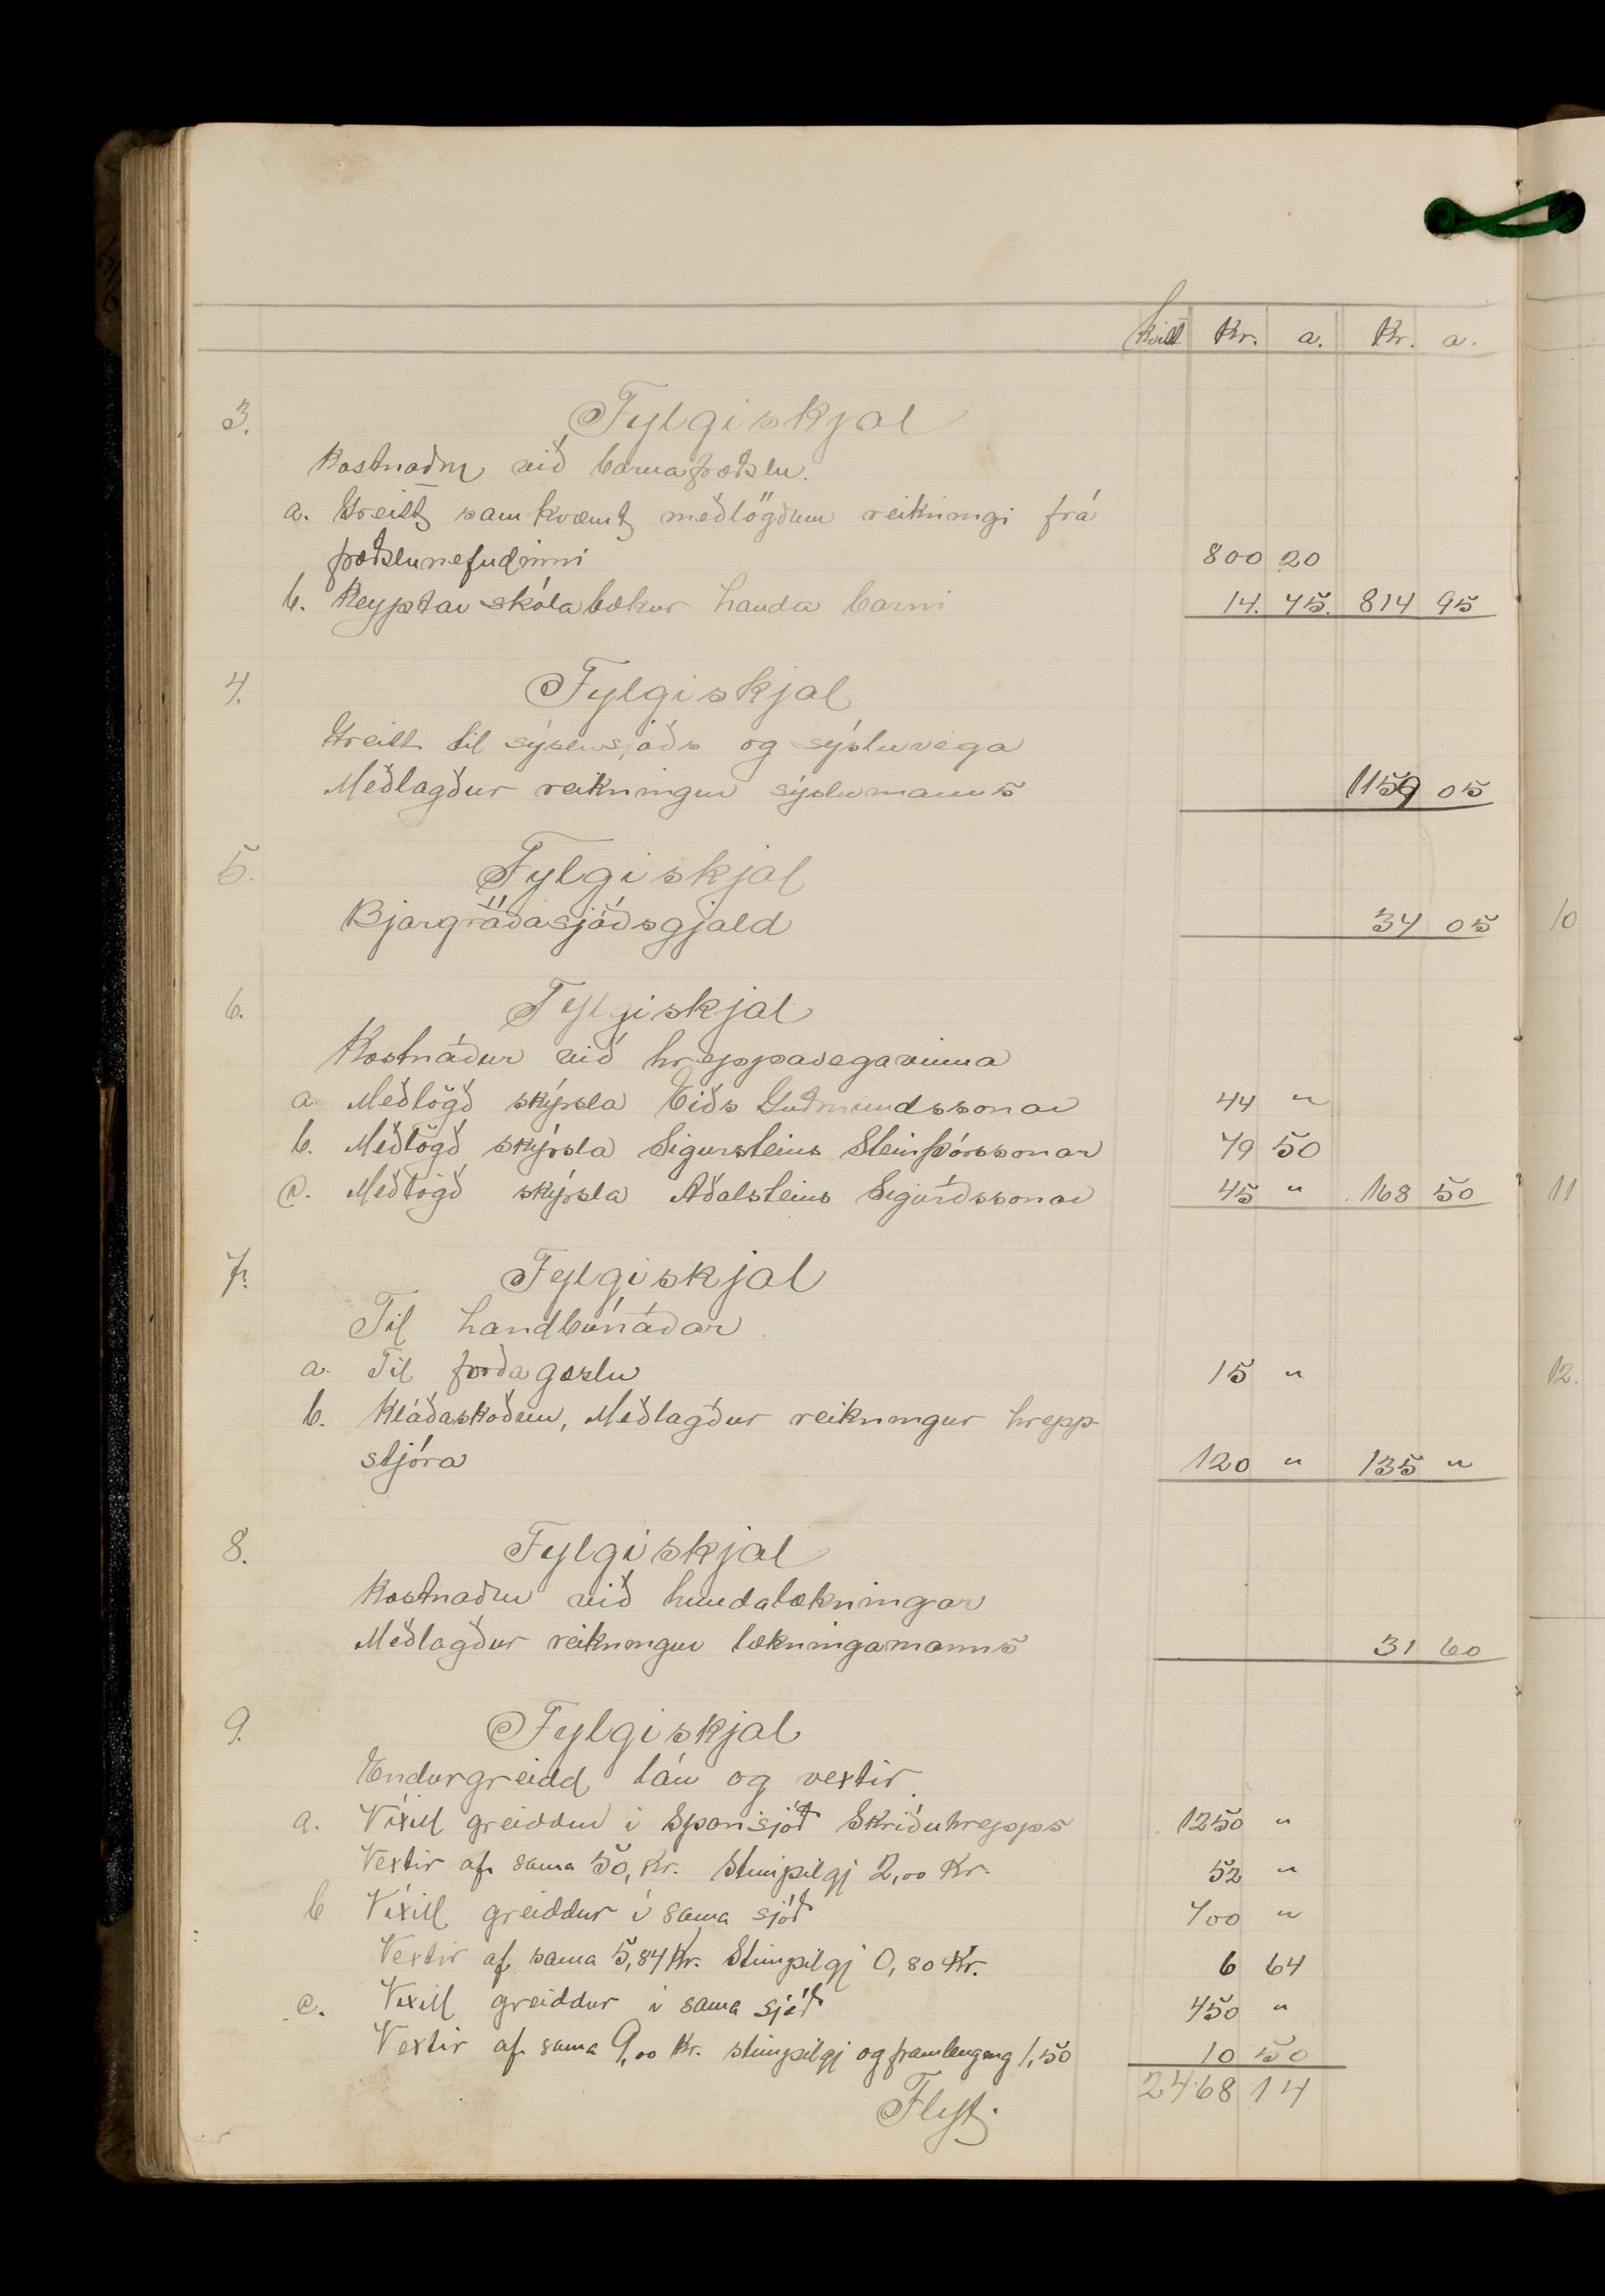 Kvitt Kr. a. Kr. a.
3. Fylgiskjal
Kostnaður við barnafræðslu.
a. Greitt samkvæmt meðlögðum reikningi frá
fræðslunefndinni 800 20
b. Keyptar skólabækur handa barni 14. 75. 814 95
4. Fylgiskjal
Greitt til sýslusjóðs og sýsluvega
Meðlagður reikningur sýslumanns 1159 05
5. Fylgiskjal
Bjargráðasjóðsgjald 34 05
10
6. Fylgiskjal
Kostnaður við hreppavegavinna
a. Meðlögð skýrsla Eiðs Guðmundssonar 44 "
b. Meðlögð skýrsla Sigursteins Steinþórssonar 79 50
c. Meðlögð skýrsla Aðalsteins Sigurðssonar 45 " 168 50
11
7. Fylgiskjal
Til landbúnaðar
a. Til forðagæslu 15 "
12.
b. Kláðaskoðun, Meðlagður reikningur hrepp-
stjóra 120 " 135 "
8. Fylgiskjal
Kostnaður við hundalækningar
Meðlagður reikningur lækningamanns 31 60
9. Fylgiskjal
Endurgreidd lán og vextir
a. Víxill greiddur í Sparisjóð Skriðuhrepps 1250 "
Vextir af sama 50, Kr. Stimpilgj 2,00 Kr. 52 "
b Víxill greiddur í sama sjóð 700 "
Vextir af sama 5,84 Kr. Stimpilgj 0,80 Kr. 6 64
c. Víxill greiddur í sama sjóð 450 "
Vextir af sama 9,00 Kr. stimpilgj og framlenging 1,50 10 50
Flyt. 2468 14